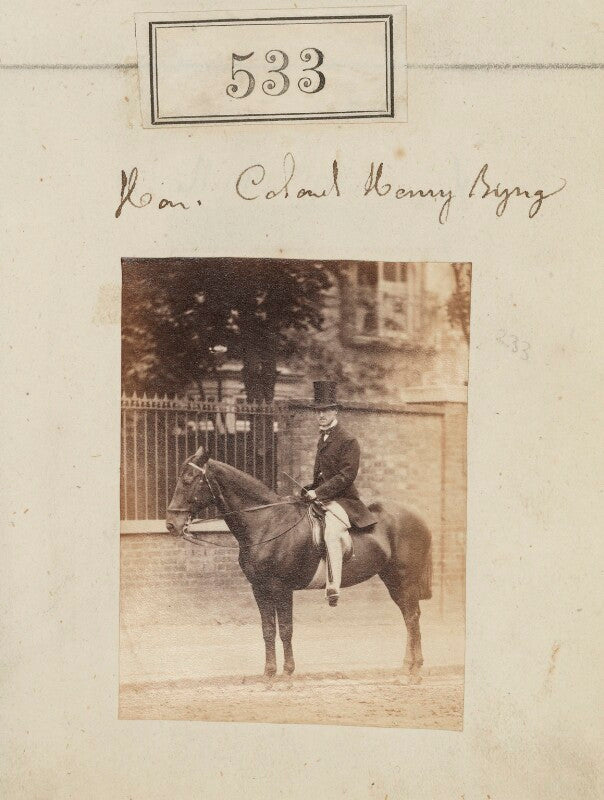 533
Hon. Colonel Henry Byng
233